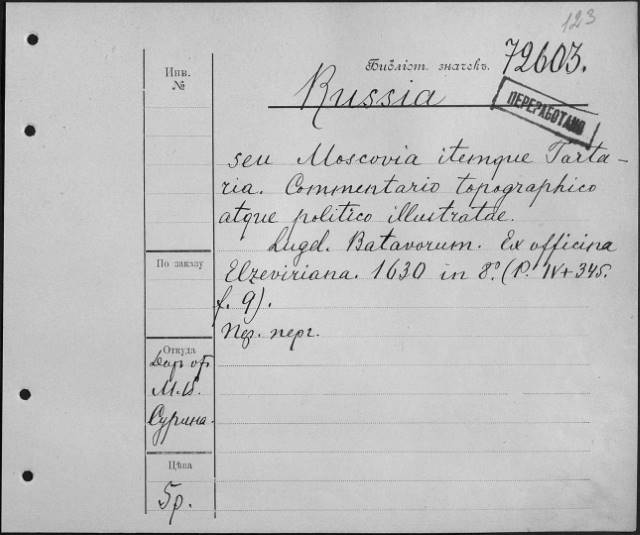 123
Инв.
№
Библіот. значекъ.
72603.
Russia
ПЕРЕРАБОТАНО
seu Moscovia itemque Tarta-
ria. Commentario topographico
atque politico illustratae.
Lugd. Batavorum. Ex officina
Elzeviriana. 1630 in 8º. (P. IV+345.
f. 9).
перг.
По заказу
Откуда
Даръ от
М.
Сурина.
Цѣна
5р.